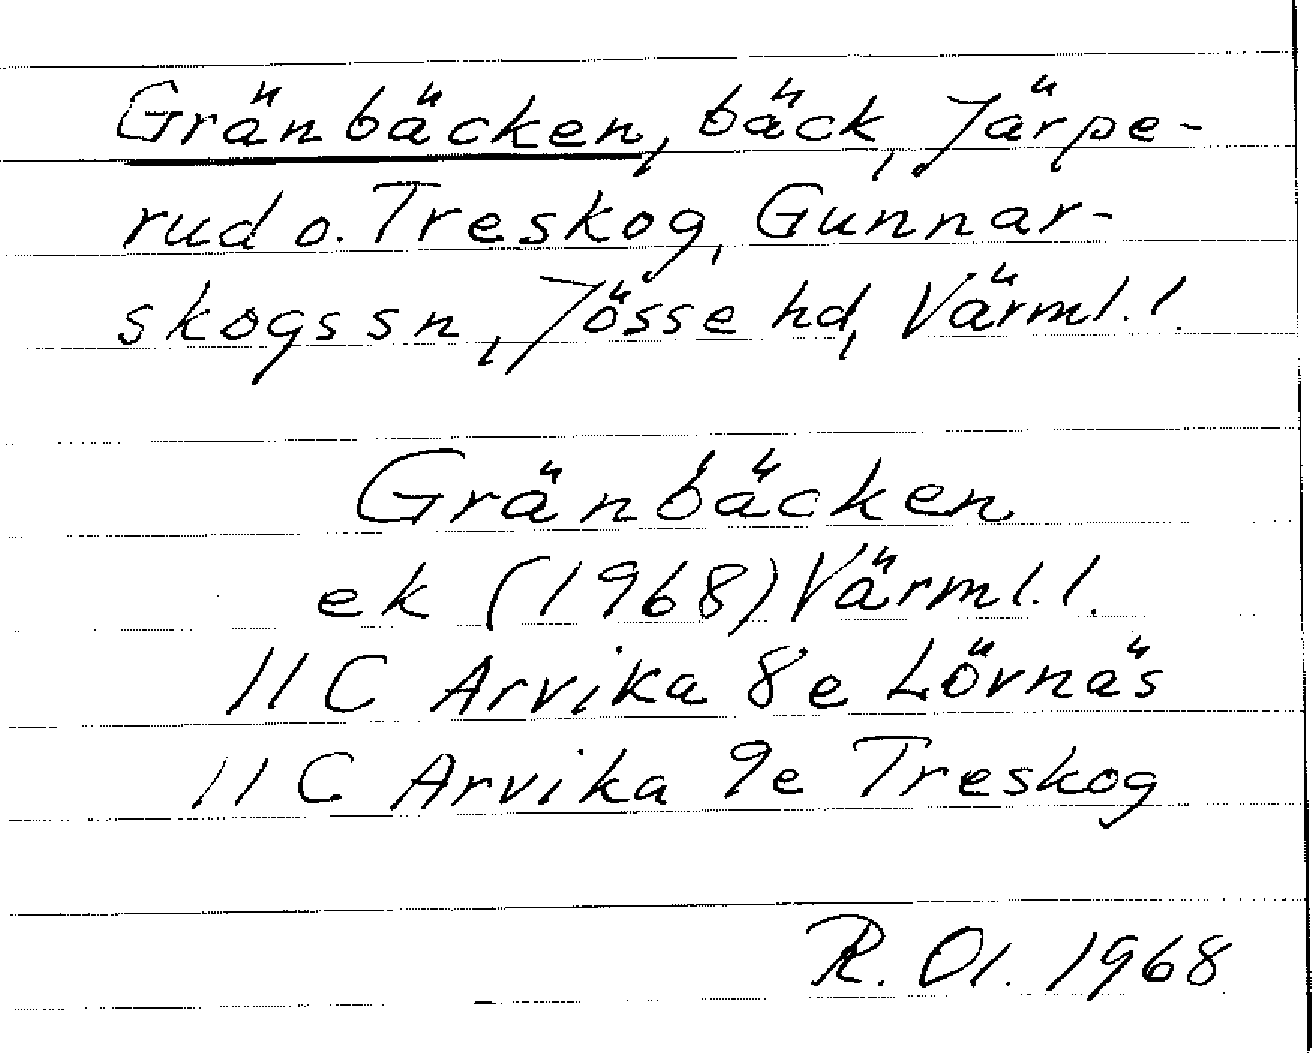 Gränbäcken, bäck, Järpe-
rud o. Treskog, Gunnar-
skogs sn, Jösse hd, Värml. l.
Gränbäcken
ek (1968) Värml. l.
11 C Arvika 8e Lövnäs
11 C Arvika 9e Treskog
R. Ol. 1968